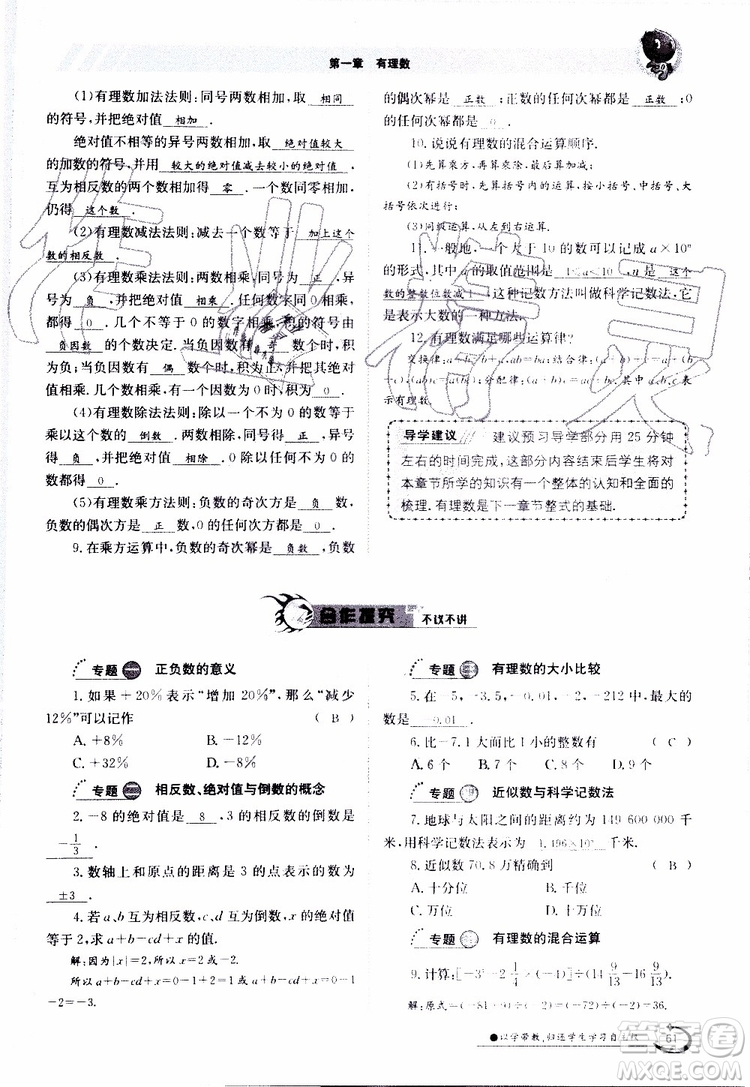 第一章 有理数
(1)有理数加法法则:同号两数相加,取 相同
的符号,并把绝对值 相加 .
绝对值不相等的异号两数相加,取 绝对值较大
的加数的符号,并用 较大的绝对值减去较小的绝对值 .
互为相反数的两个数相加得 零 .一个数同零相加,
仍得 这个数 .
(2)有理数减法法则:减去一个数,等于 加上这个
数的相反数 .
(3)有理数乘法法则:两数相乘,同号得 正 ,异
号得 负 ,并把绝对值 相乘 .任何数字同0相乘,
都得 0 .几个不等于0的数字相乘,积的符号由
负因数 的个数决定.当负因数有 奇 数个时,积
为负;当负因数有 偶 数个时,积为正,并把其绝对
值相乘.
(4)有理数除法法则:除以一个不为0的数等于
乘以这个数的 倒数 ,两数相除,同号得正,异号
得负,并把绝对值 相除 .0除以任何一个不为0的
数,都得 0 .
(5)有理数乘方法则:负数的奇次方是 负数 ,
负数的偶次方是 正数 ,0的任何正整数次方都是
0 .
9.在乘方运算中,负数的奇次幂是 负数 ,负数
的偶次幂是 正数 ;正数的任何次幂都是 正数 ;0
的任何次幂都是 0 .
10.说说有理数的混合运算顺序.
(1)先算乘方,再算乘除,最后算加减;
(2)有括号时,先算括号里面的运算,按小括号、中括号、大括
号依次进行;
(3)同级运算,从左到右进行.
11.一般地,一个大于10的数可以记成a×10ⁿ
的形式,其中a的取值范围是 1≤a<10 ,n是 这个
数的整数位数减1 ,这种记数方法叫做科学记数法,它
是表示大数的一种方法.
12.有理数满足哪些运算律?
交换律:a+b=b+a,ab=ba;结合律:(a+b)+c=a+(b+
c),(ab)c=a(bc);分配律:(a+b)·c=ac+bc,其中a,b,c表示任
意有理数.
导学建议 建议预习导学部分用25分钟
左右的时间完成,这部分内容结束后学生将对
本章节所学的知识有一个整体的认知和全面的
梳理.有理数是下一章节整式的基础.
合作探究 不议不讲
专题一 正负数的意义
1.如果+20%表示“增加20%”,那么“减少
12%”可以记作 ( B )
A.+8% B.-12%
C.+32% D.-8%
专题二 相反数、绝对值与倒数的概念
2.-8的绝对值是 8 ,3的相反数的倒数是
-1/3 .
3.数轴上和原点的距离是3的点表示的数是
±3 .
4.若a、b互为相反数,c、d互为倒数,x的绝对值
等于2,求a+b-cd+x的值.
解:因为|x|=2,所以x=±2.
所以a+b-cd+x=0-1+2=1或a+b-cd+x=0-1
-2=-3.
专题三 有理数的大小比较
5.在-5,-3.5,-0.01,-2,-212中,最大的
数是 -0.01 .
6.比-7.1大,而比1小的整数有 ( C )
A.6个 B.7个 C.8个 D.9个
专题四 近似数与科学记数法
7.地球与太阳之间的距离约为149 600 000千
米,用科学记数法表示为 1.496×10⁸ 千米.
8.近似数70.8万精确到 ( B )
A.十分位 B.千位
C.万位 D.百位
专题五 有理数的混合运算
解:原式=(-81-9/4×4/9×14 9/13)÷(-16 9/13)=36.
以学带教,归还学生学习自主权
61